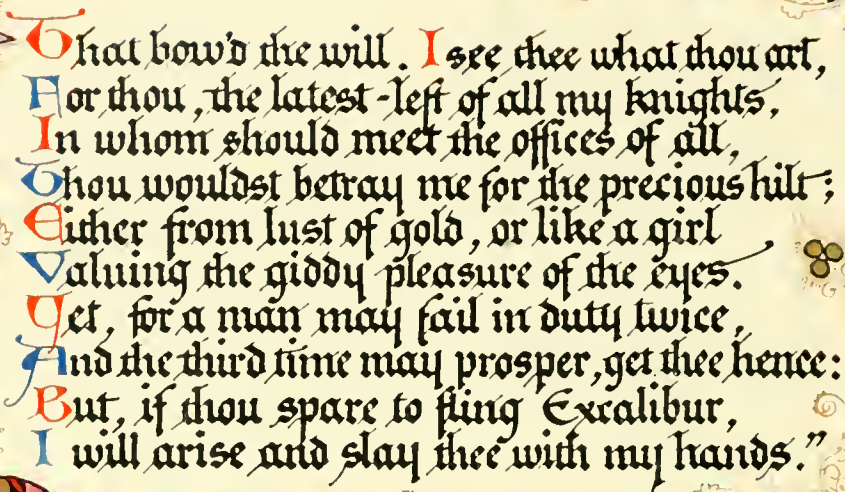 That bow'd the will. I see thee what thou art,
For thou, the latest-left of all my knights,
In whom should meet the offices of all,
Thou wouldst betray me for the precious hilt;
Either from lust of gold, or like a girl
Valuing the giddy pleasure of the eyes.
Yet, for a man may fail in duty twice,
And the third time may prosper, get thee hence:
But, if thou spare to fling Excalibur,
I will arise and slay thee with my hands."